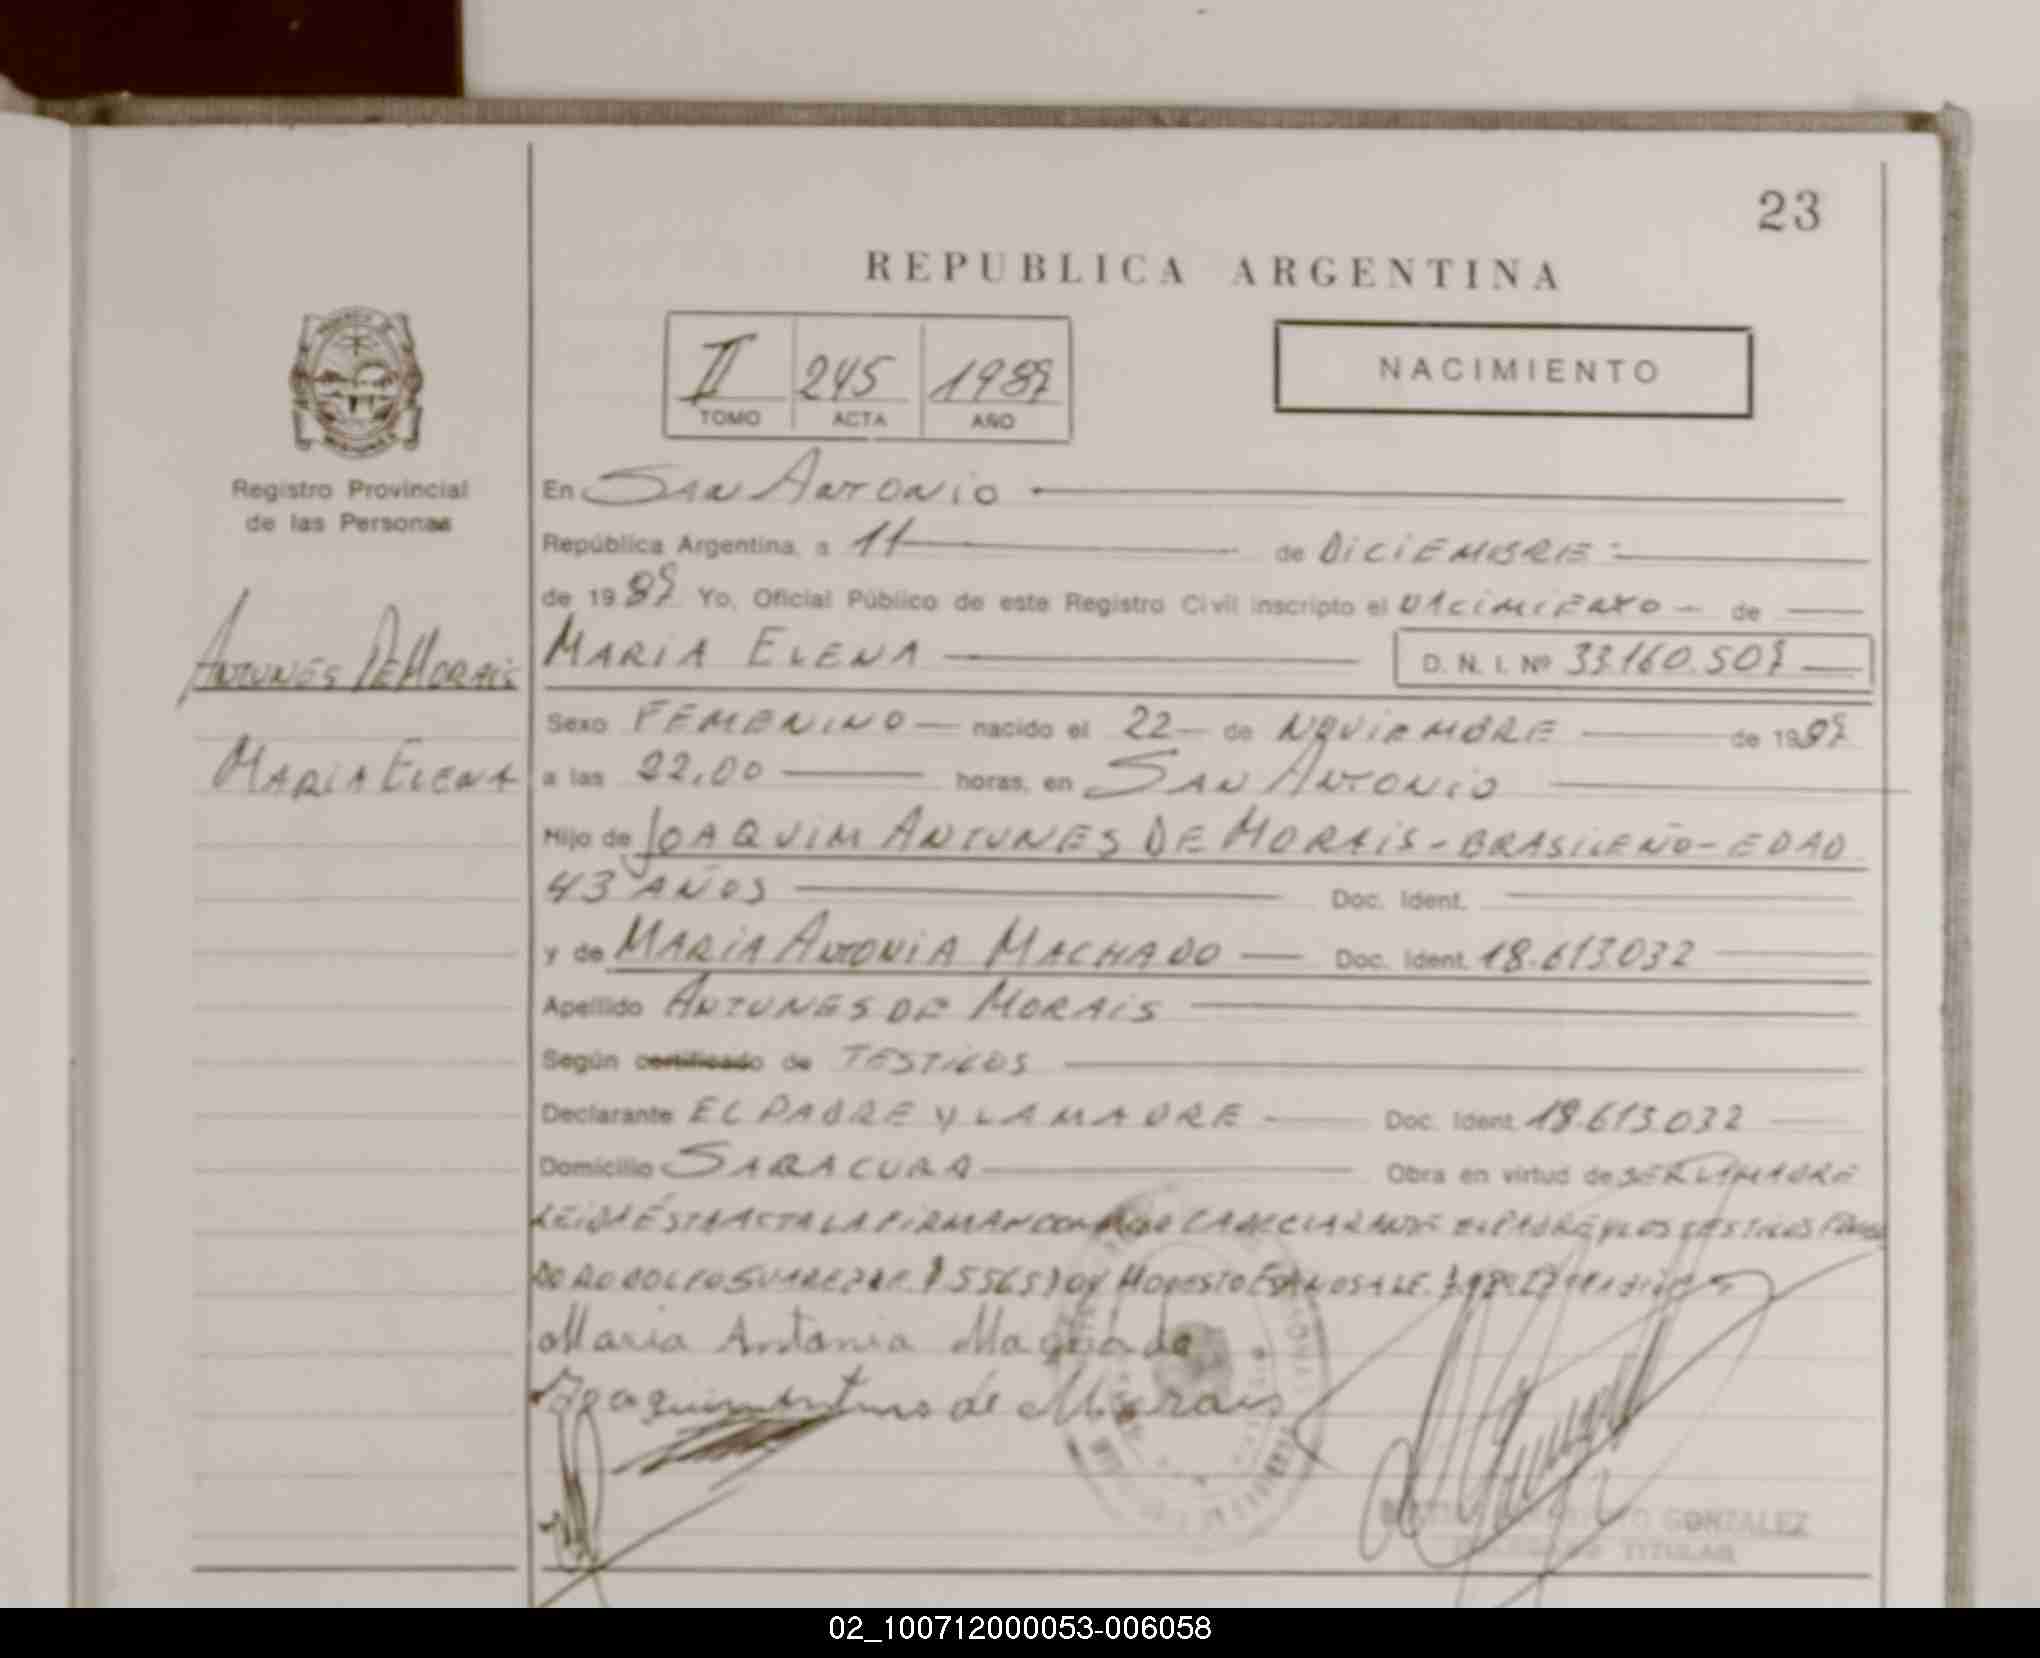 23
REPUBLICA ARGENTINA
II 245 1987
TOMO ACTA AÑO
NACIMIENTO
Registro Provincial
de las Personas
En SAN ANTONIO
República Argentina, a 11 de DICIEMBRE
de 1987 Yo, Oficial Público de este Registro Civil inscripto el NACIMIENTO de
ANTUNES DE MORAIS
MARIA ELENA D. N. I. Nº 33.160.507
Sexo FEMENINO nacido el 22 de NOVIEMBRE de 1987
MARIA ELENA
a las 22,00 horas, en SAN ANTONIO
Hijo de JOAQUIM ANTUNES DE MORAIS - BRASILEÑO - EDAD
43 AÑOS Doc. Ident.
y de MARIA ANTONIA MACHADO Doc. Ident. 18.613.032
Apellido ANTUNES DE MORAIS
Según certificado de TESTIGOS
Declarante EL PADRE Y LA MADRE Doc. Ident. 18.613.032
Domicilio SARACURA Obra en virtud de SER LA MADRE
LEIDA ÉSTA ACTA LA FIRMAN CONMIGO LA DECLARANTE EL PADRE Y LOS TESTIGOS
RODOLFO SUAREZ MODESTO
Maria Antonia Machado
Joaquim Antunes de Morais
GONZALEZ
TITULAR
02_100712000053-006058